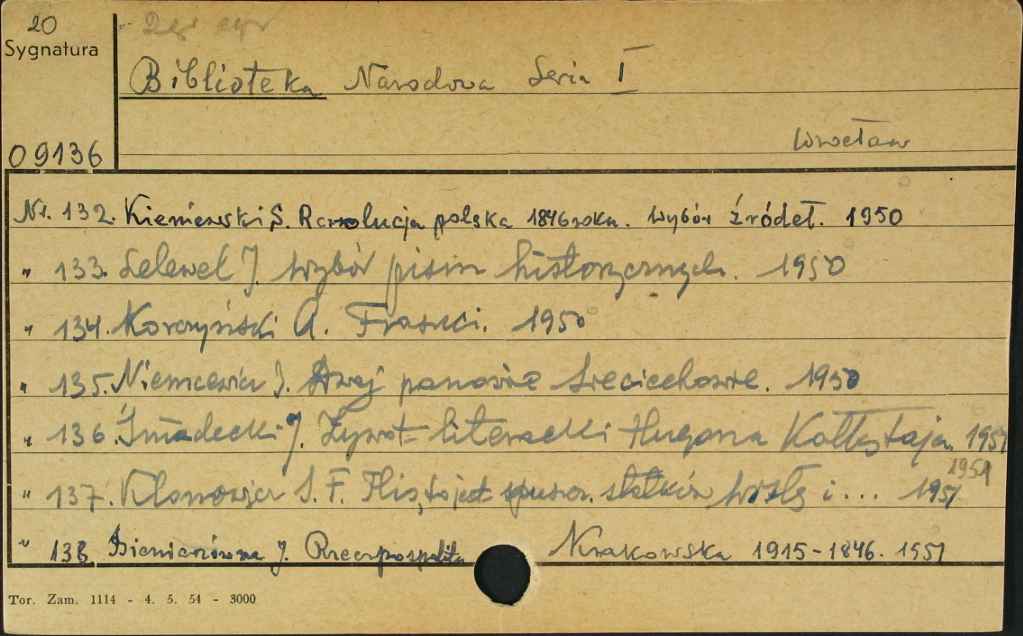 20
Sygnatura
Biblioteka Narodowa Seria I
09136
Wrocław
Nr. 132. Kieniewski S. Rewolucja polska 1846 roku. Wybór źródeł. 1950
„ 133. Lelewel J. Wybór pism historycznych. 1950
„ 134. Korczyński A. Fraszki. 1950
„ 135. Niemcewicz J. Dwaj panowie Sieciechowie. 1950
„ 136. Śniadecki J. Żywot literacki Hugona Kołłątaja 1951
„ 137. Klonowicz S. F. Flis, to jest spuszcz. statków Wisłą i ... 1951
1951
„ 138. Bieniarzówna J. Rzeczpospolita Krakowska 1915-1846. 1951
Tor. Zam. 1114 - 4. 5. 54 - 3000